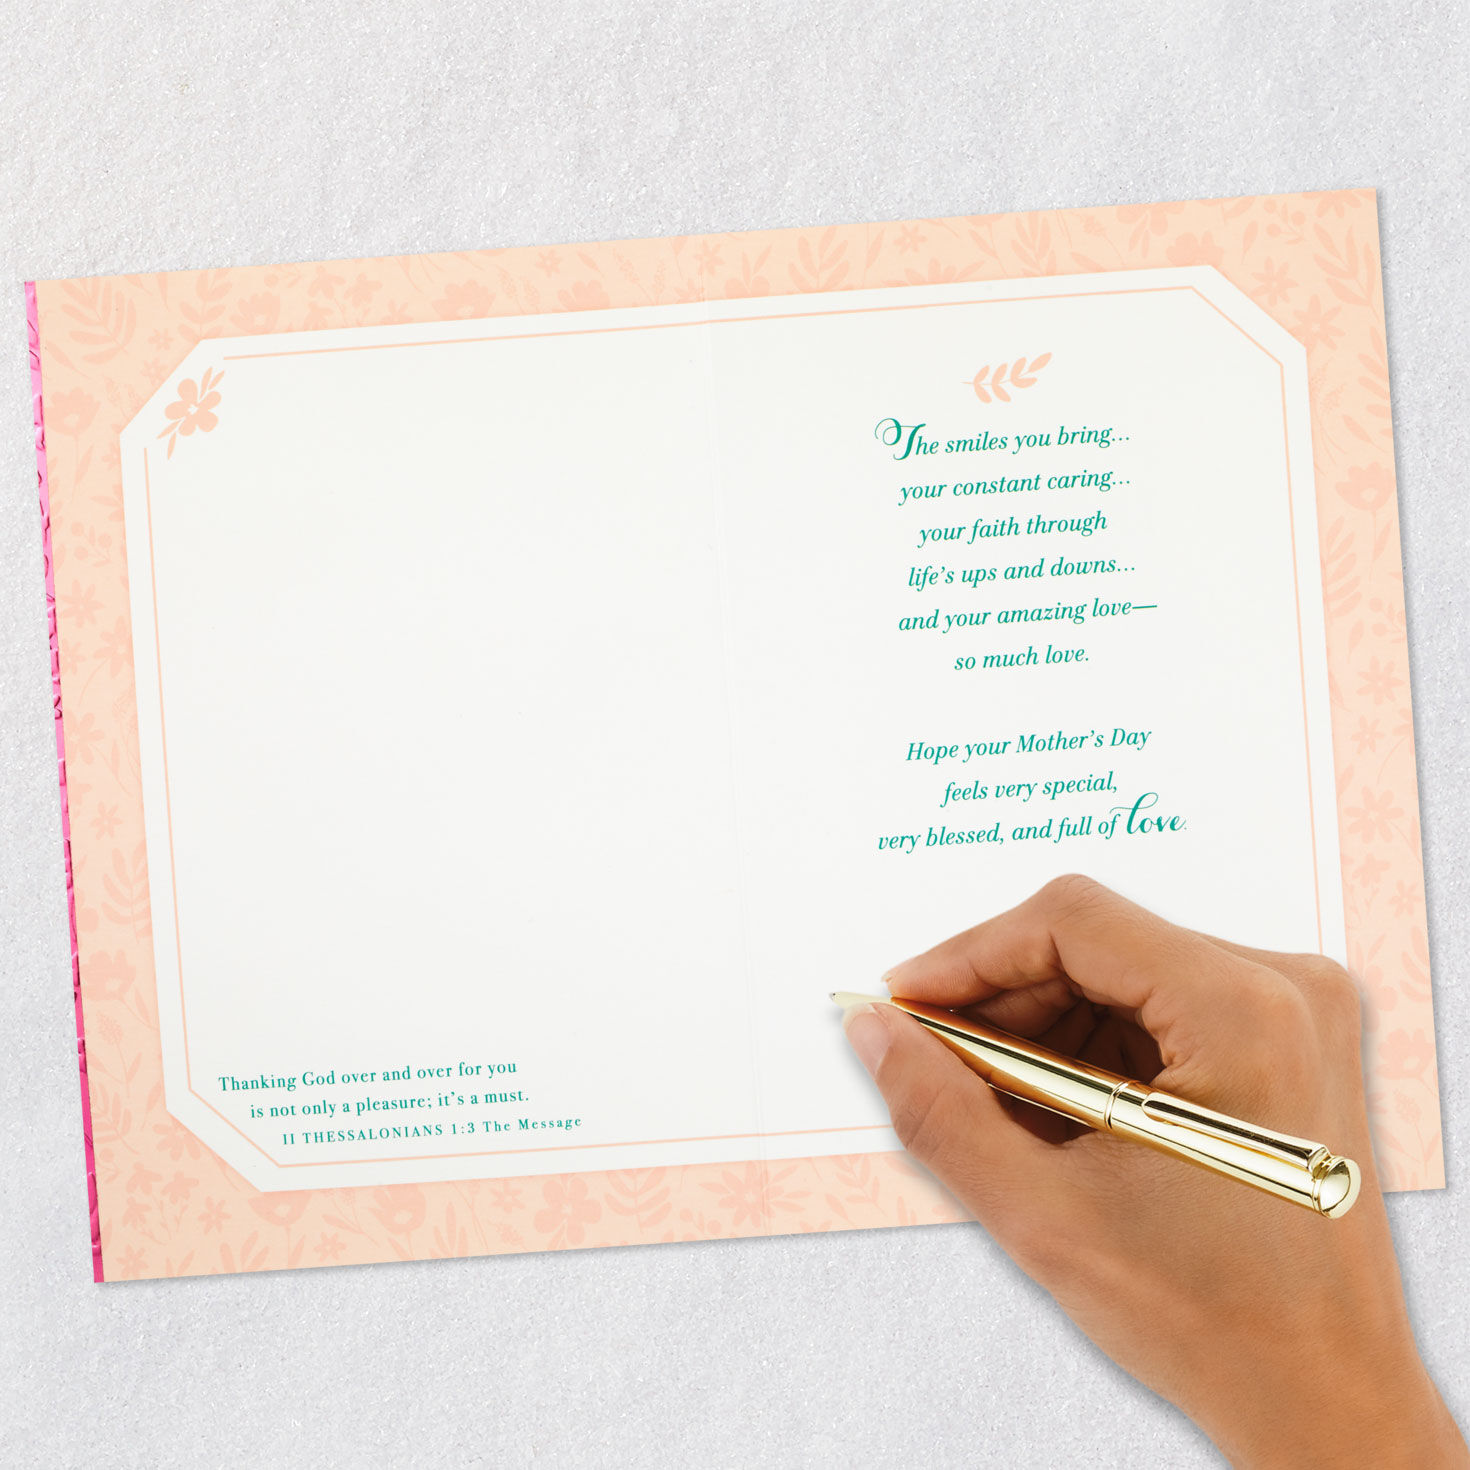 Thanking God over and over for you
is not only a pleasure; it's a must.
II THESSALONIANS 1:3 The Message
The smiles you bring…
your constant caring…
your faith through
life's ups and downs…
and your amazing love—
so much love.
Hope your Mother's Day
feels very special,
very blessed, and full of love.